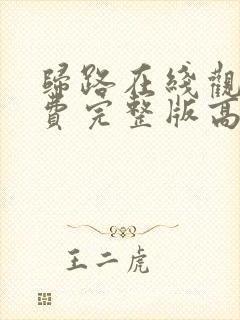 歸路在綫觀
費完整版高
王二虎